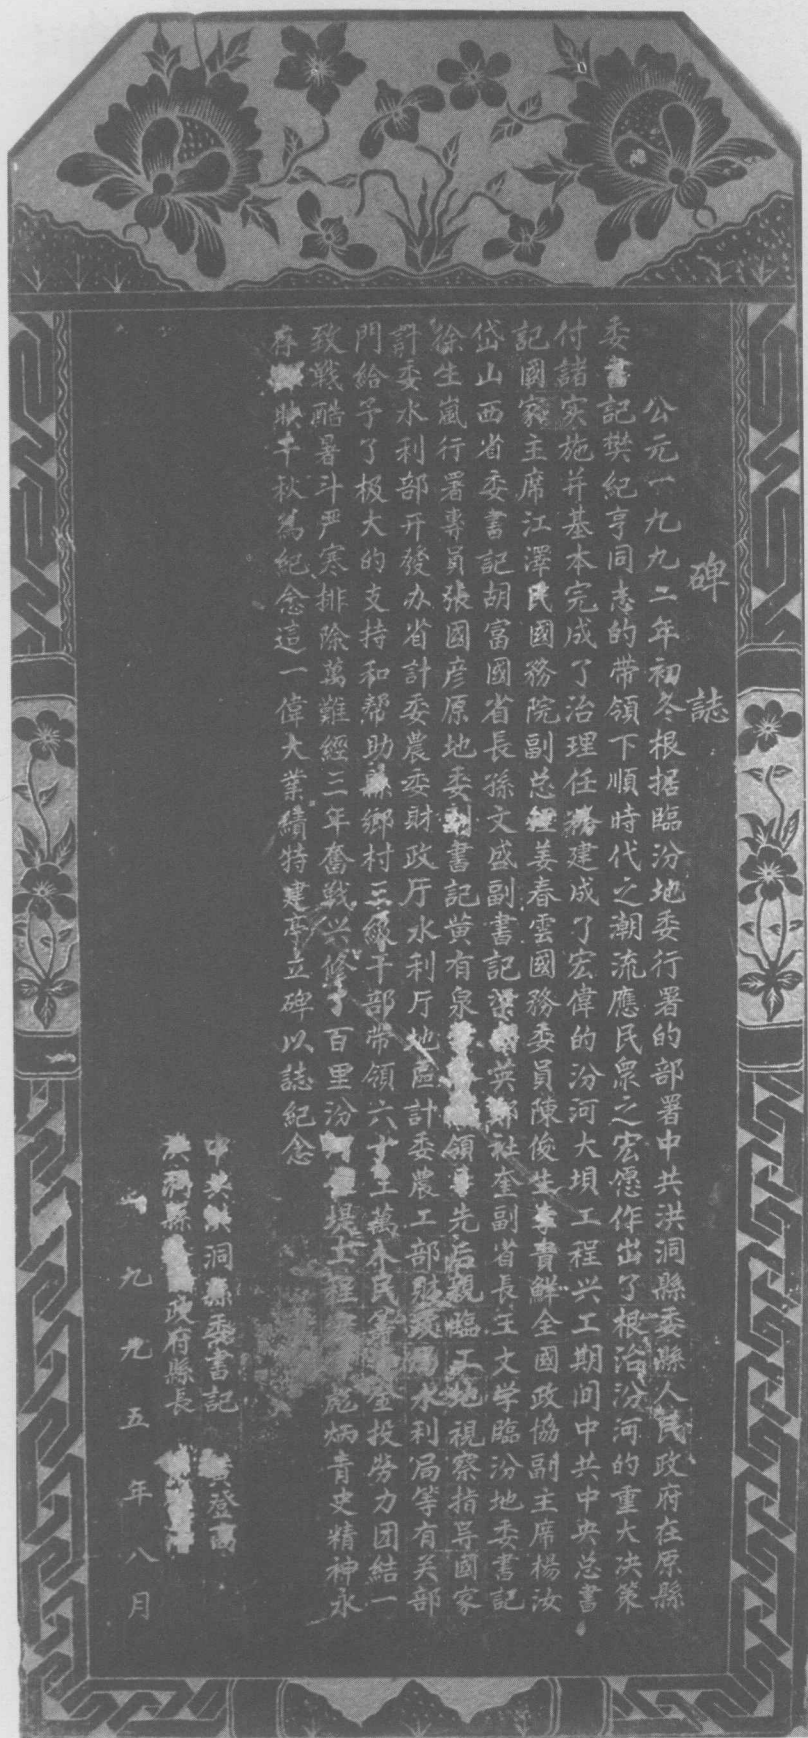 碑誌
公元一九九二年初冬根据臨汾地委行署的部署中共洪洞縣委縣人民政府在原縣
委書記樊紀亨同志的带領下順時代之潮流應民衆之宏愿作出了根治汾河的重大决策
付諸实施并基本完成了治理任務建成了宏偉的汾河大埧工程兴工期间中共中央总書
記國家主席江澤民國務院副总理姜春雲國務委員陳俊生李貴鮮全國政協副主席楊汝
岱山西省委書記胡富國省長孫文盛副書記梁國英鄭社奎副省長王文学臨汾地委書記
徐生嵐行署專員張國彦原地委副書記黄有泉領導先后親臨工地視察指导國家
計委水利部开發办省計委農委財政厅水利厅地區計委農工部財政局水利局等有关部
門給予了极大的支持和帮助縣鄉村三級干部带領六十三萬人民籌資金投劳力团結一
致戰酷暑斗严寒排除萬難經三年奮戰兴修了百里汾河堤工程彪炳青史精神永
存映千秋為紀念這一偉大業績特建亭立碑以誌紀念
中共洪洞縣委書記 登高
洪洞縣政府縣長
一九九五年八月